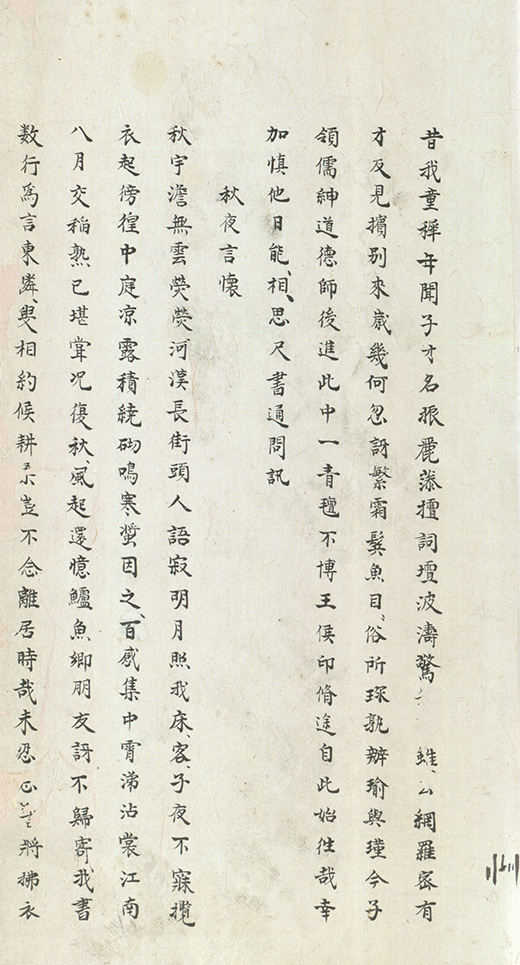 昔我童稺年聞子才名振麗藻擅詞壇波濤驚 䧿 網羅密有
才反見擯別來歲幾何忽訝繁霜鬂魚目俗所珎孰辧瑜與瑾今子
領儒紳道德師後進此中一青氊不博王侯印脩途自此始徃哉幸
加慎他日能相思尺書通問訊
秋夜言懷
秋宇澹無雲熒熒河漢長街頭人語寂明月照我床客子夜不寐攬
衣起徬徨中庭凉露積繞砌鳴寒螀因之百感集中霄涕沾裳江南
八月交稲熟已堪甞况復秋風起還憶鱸魚鄉朋友訝不歸寄我書
数行爲言東隣叟相約候耕 豈不念離居時哉未忍 將拂衣